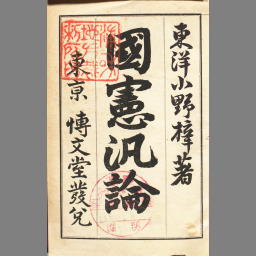 東洋小野梓著
國憲汎論
東京 博文堂發兌